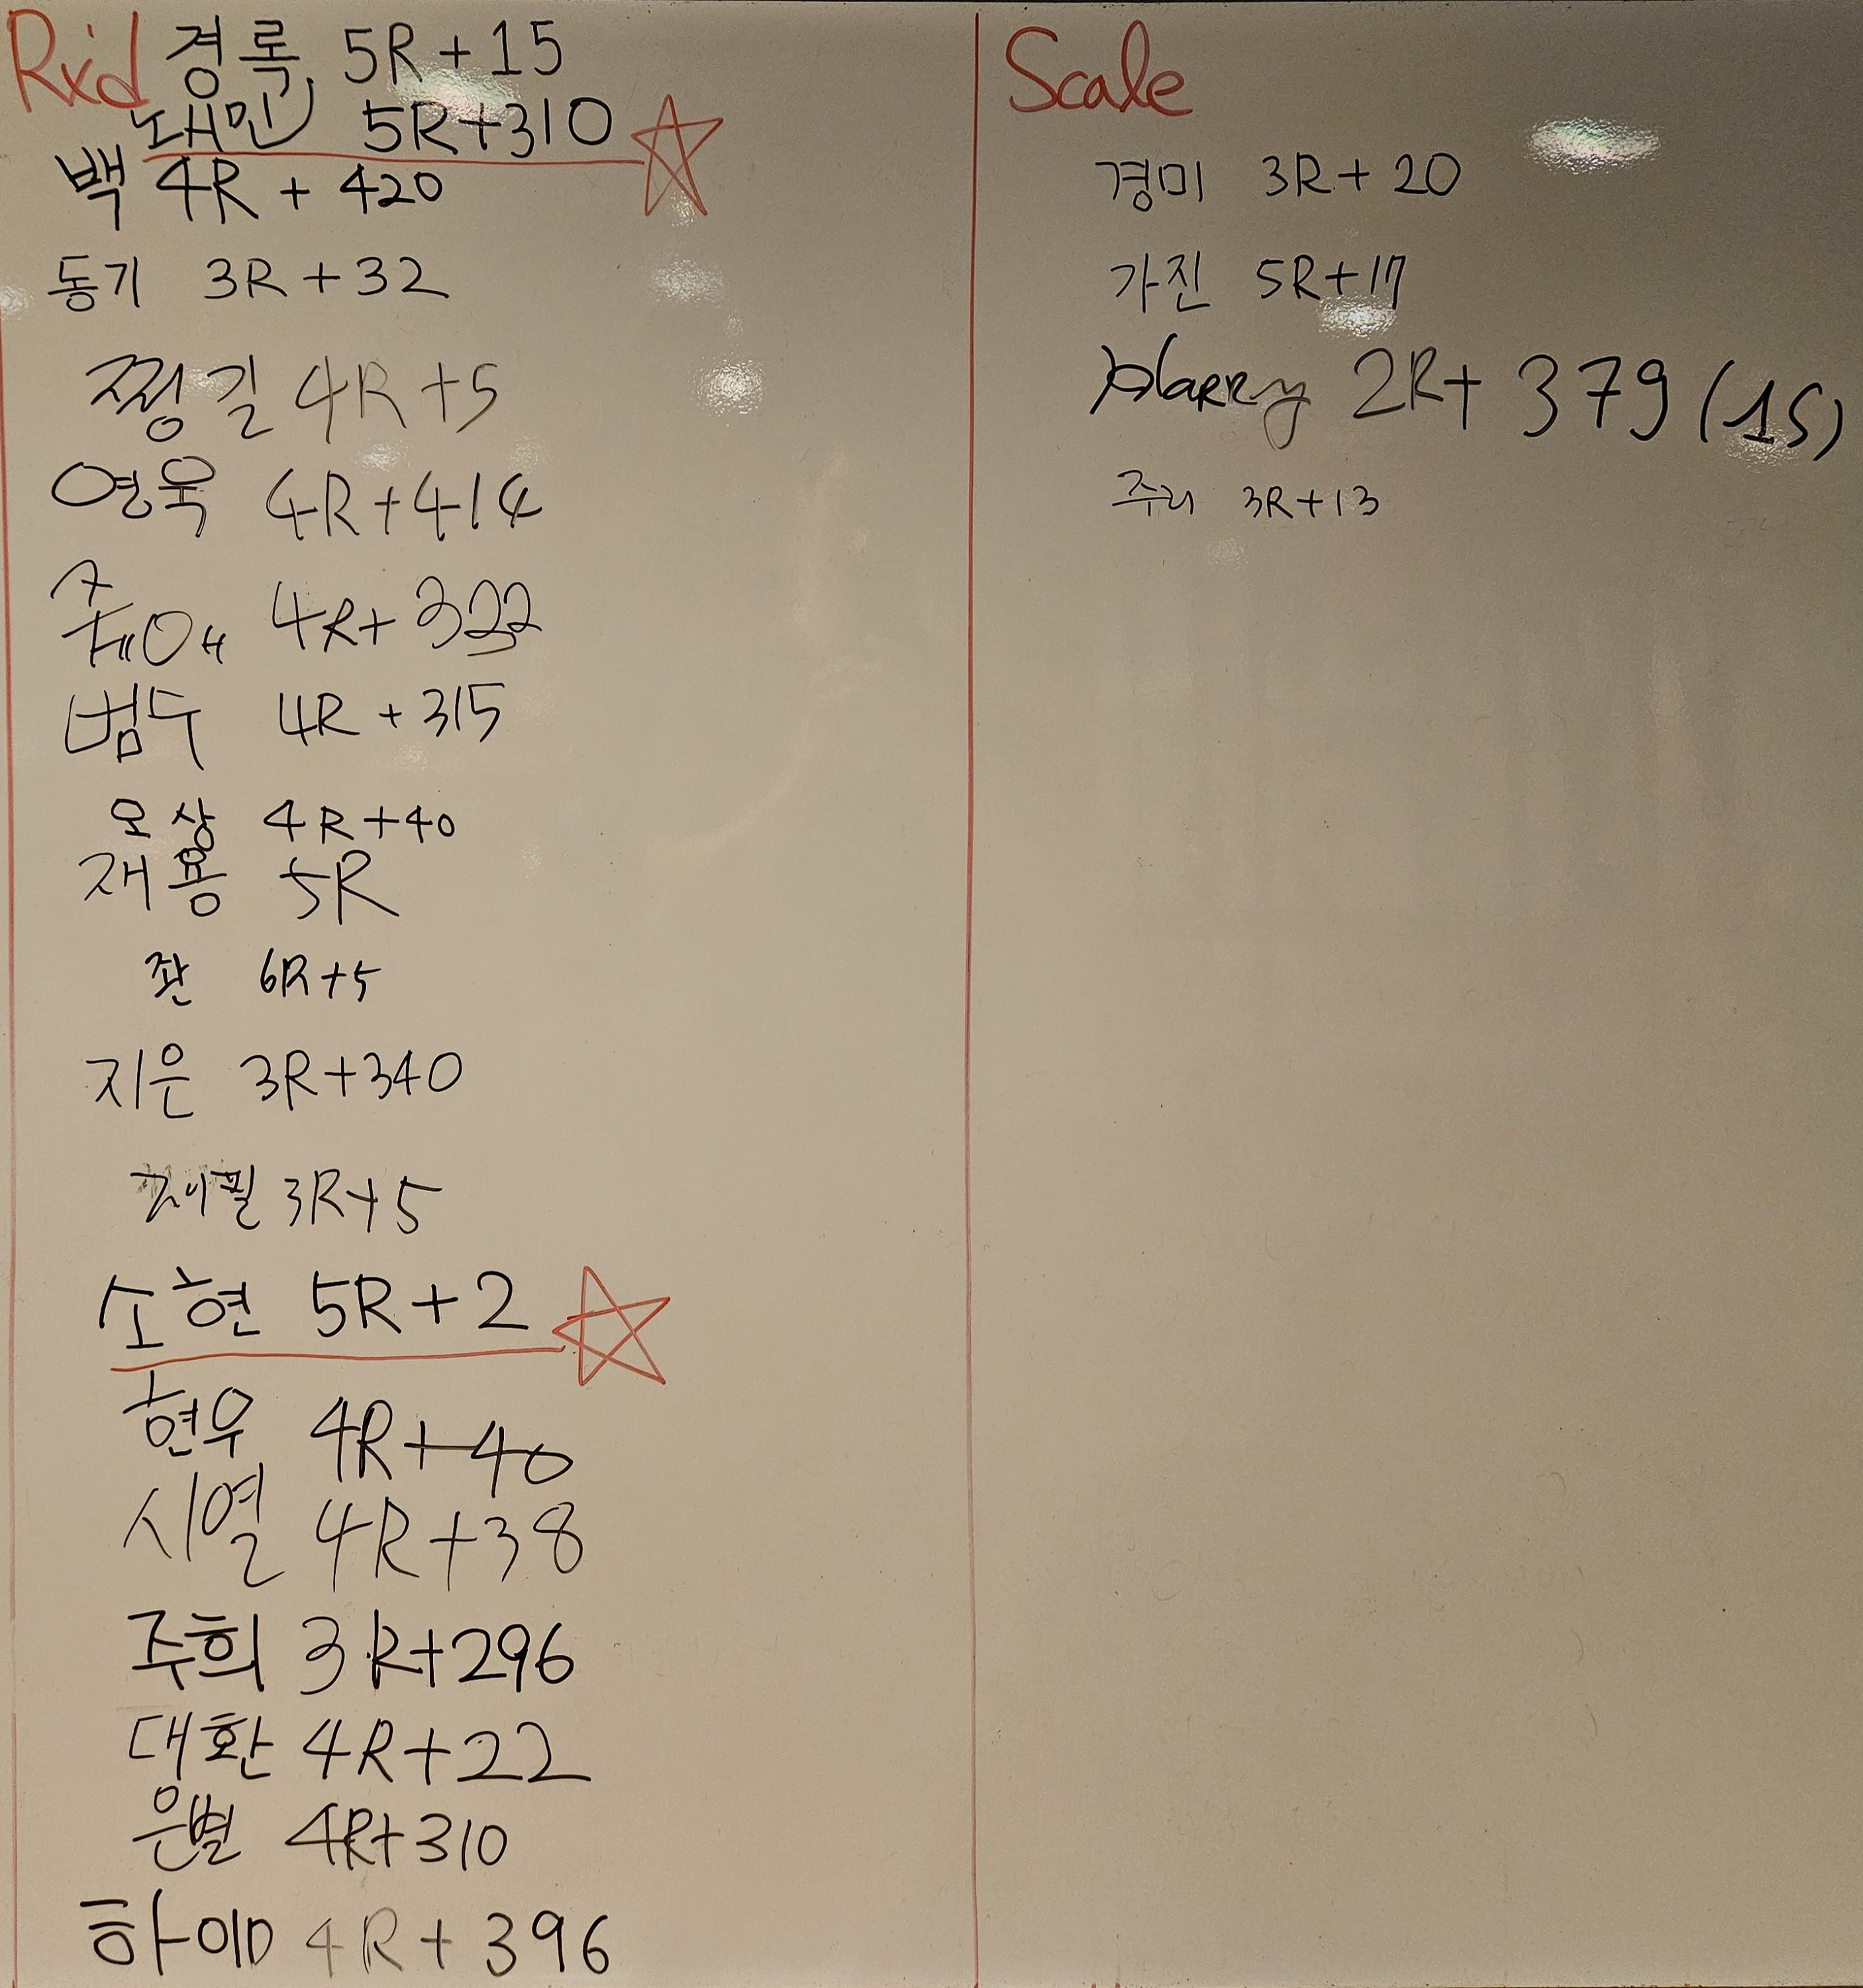 Rx'd
경록 5R+15
5R+310
백 4R + 420
동기 3R+32
찡길 4R+5
영욱 4R+414
4R+322
범수 4R+315
오상 4R+40
재용 5R
좐 6R+5
지은 3R+340
3R+5
소현 5R+2
현우 4R+40
시열 4R+38
주희 3R+296
대환 4R+22
은별 4R+310
4R+396
Scale
경미 3R+20
가진 5R+17
Harry 2R+ 379 (15)
주리 3R+13